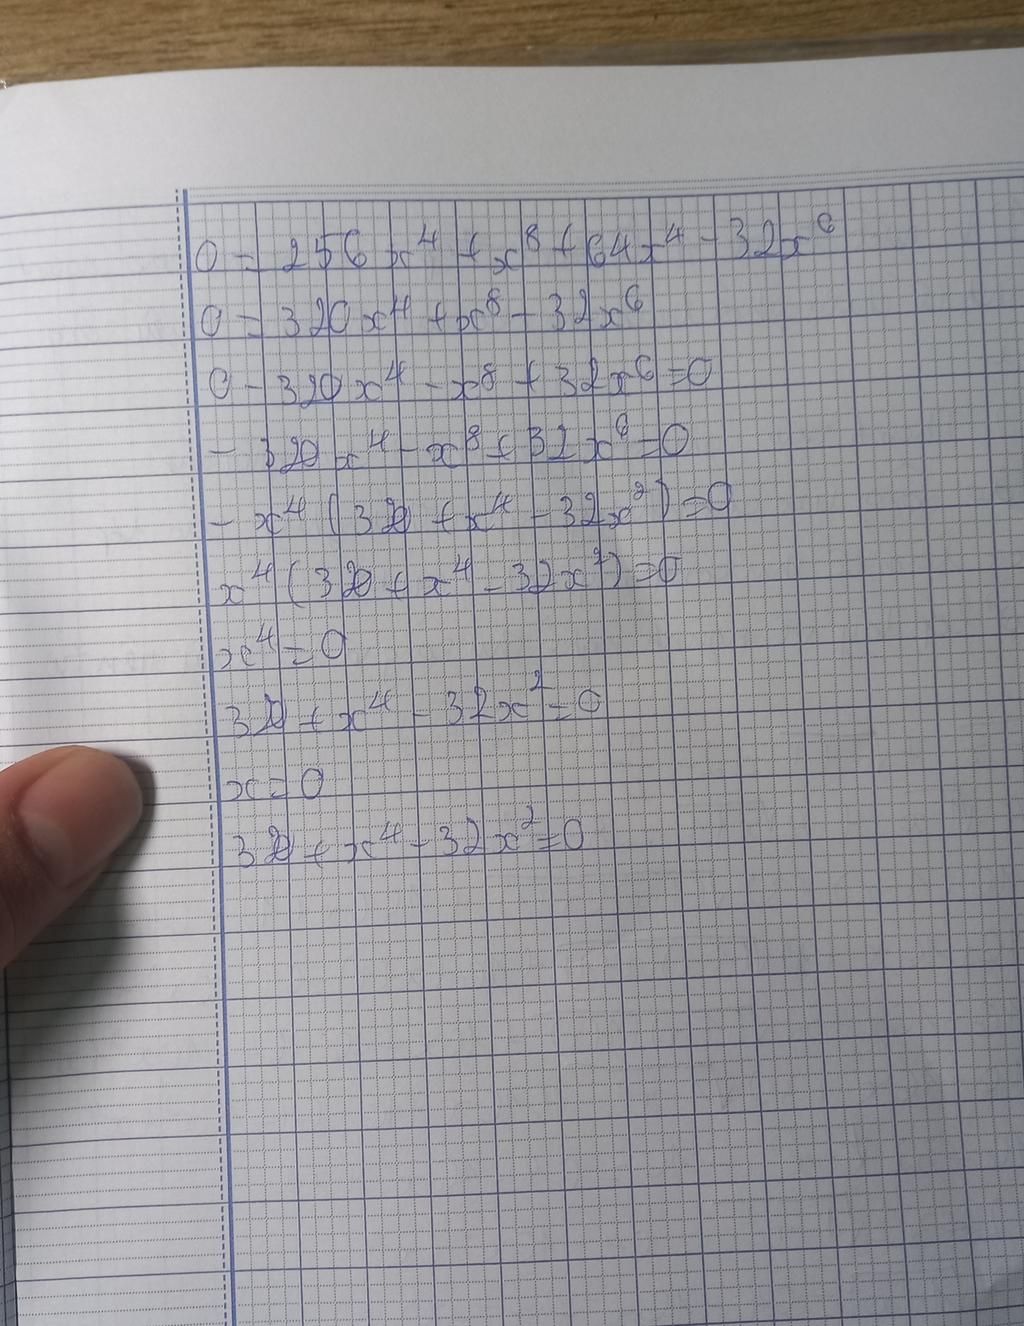 0 = 256x⁴ + x⁸ + 64x⁴ - 32x⁶
0 = 320x⁴ + x⁸ - 32x⁶
0 - 320x⁴ - x⁸ + 32x⁶ = 0
- 320x⁴ - x⁸ + 32x⁶ = 0
- x⁴ (320 + x⁴ - 32x²) = 0
x⁴ (320 + x⁴ - 32x²) = 0
x⁴ = 0
320 + x⁴ - 32x² = 0
x = 0
320 + x⁴ - 32x² = 0